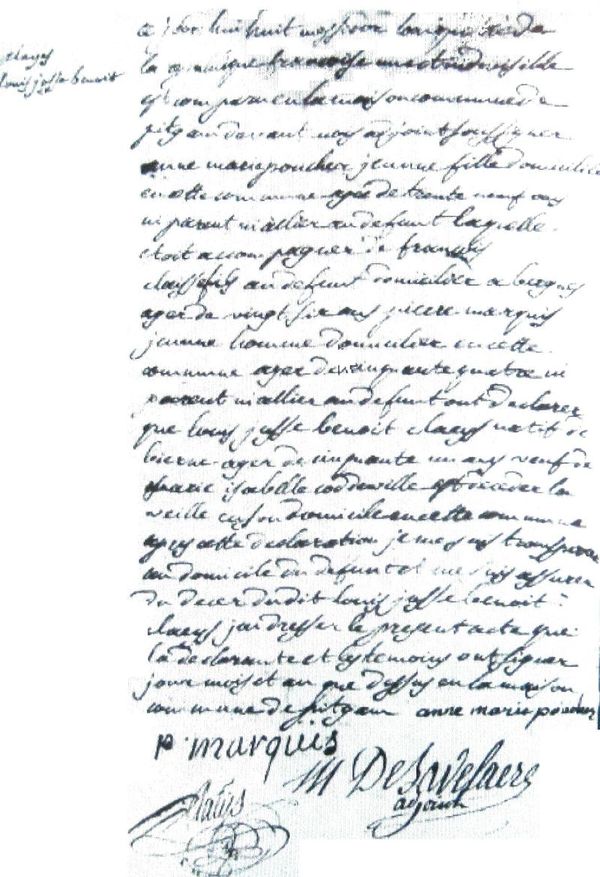 Claeys
Louis josse benoit
ce jour huit messidor l'an quatre de
la republique francoise une et indivisible
est comparu en la maison commune de
pitgam devant nous adjoint soussigner
anne marie poucher jeunne fille domicilié
en cette commune agee de trente neuf ans
ni parent ni allier au defunt laquelle
etoit accompagner de francois
claeys fils au defunt domicilier a bergues
ager de vingt six ans pierre marquis
jeunne homme domicilier en cette
commune ager de cinquante quatre ni
parent ni allier au defunt ont declarer
que louis josse benoit claeys natif de
bierne ager de cinquante un ans veuf de
marie isabelle coddeville est deceder la
veille en son domicile en cette commune
apres cette declaration je me suis transporter
au domicile du defunt et me suis assurer
du deces du dit louis josse benoit
claeys j'ai dresser le present acte que
la declarante et les temoins ont signer
jour mois et an que dessus en la maison
commune de pitgam anne marie poucher
p. marquis
M DeZavelaere
adjoint
Claeys